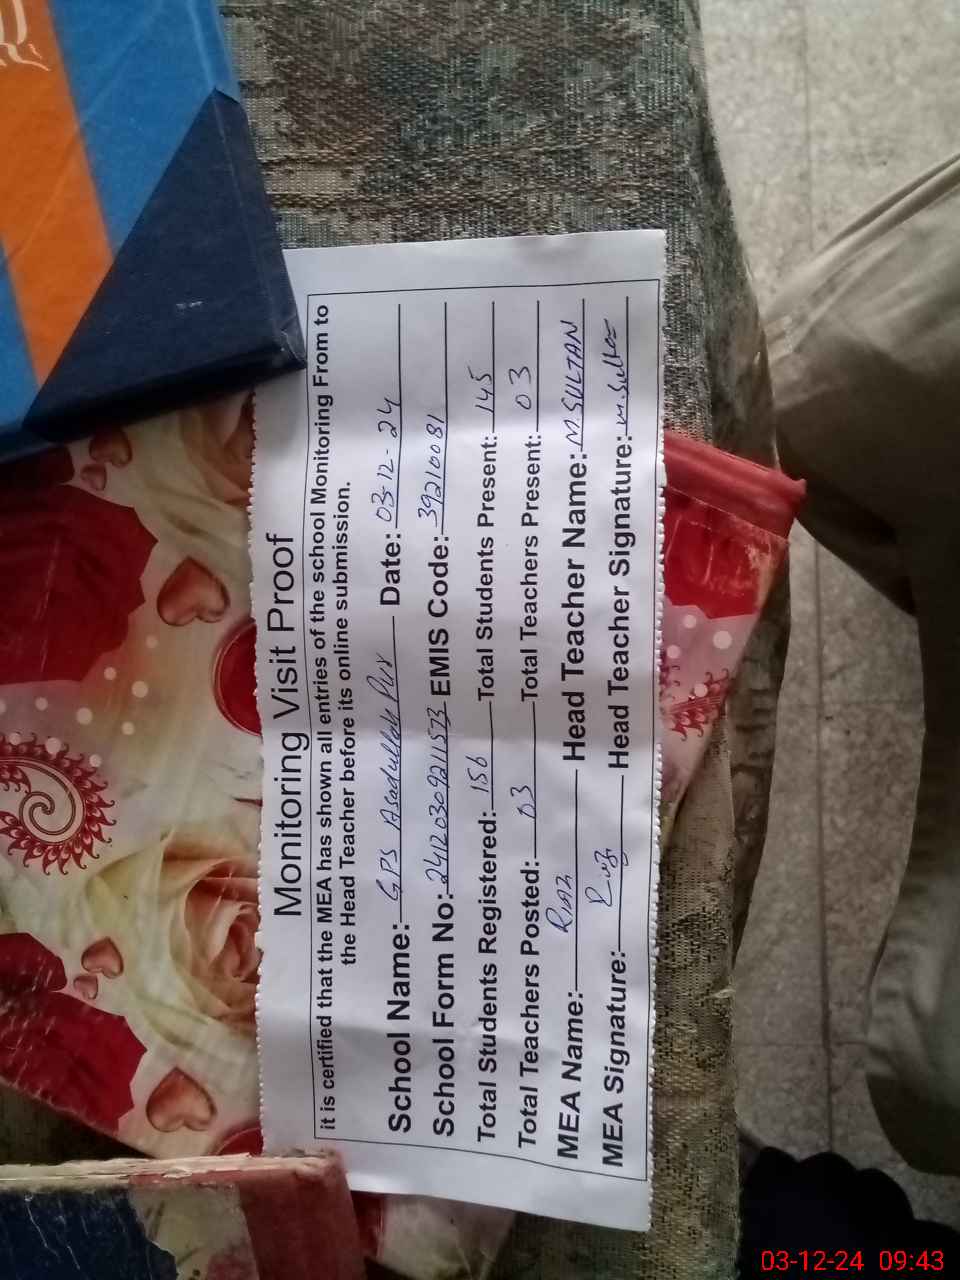 Monitoring Visit Proof
it is certified that the MEA has shown all entries of the school Monitoring From to
the Head Teacher before its online submission.
School Name: GPS Asadullah Pur Date: 03-12-24
School Form No: 24120309211573 EMIS Code: 39210081
Total Students Registered: 156 Total Students Present: 145
Total Teachers Posted: 03 Total Teachers Present: 03
MEA Name: RIAZ Head Teacher Name: M.SULTAN
MEA Signature: Riaz Head Teacher Signature: M.Sultan
03-12-24 09:43